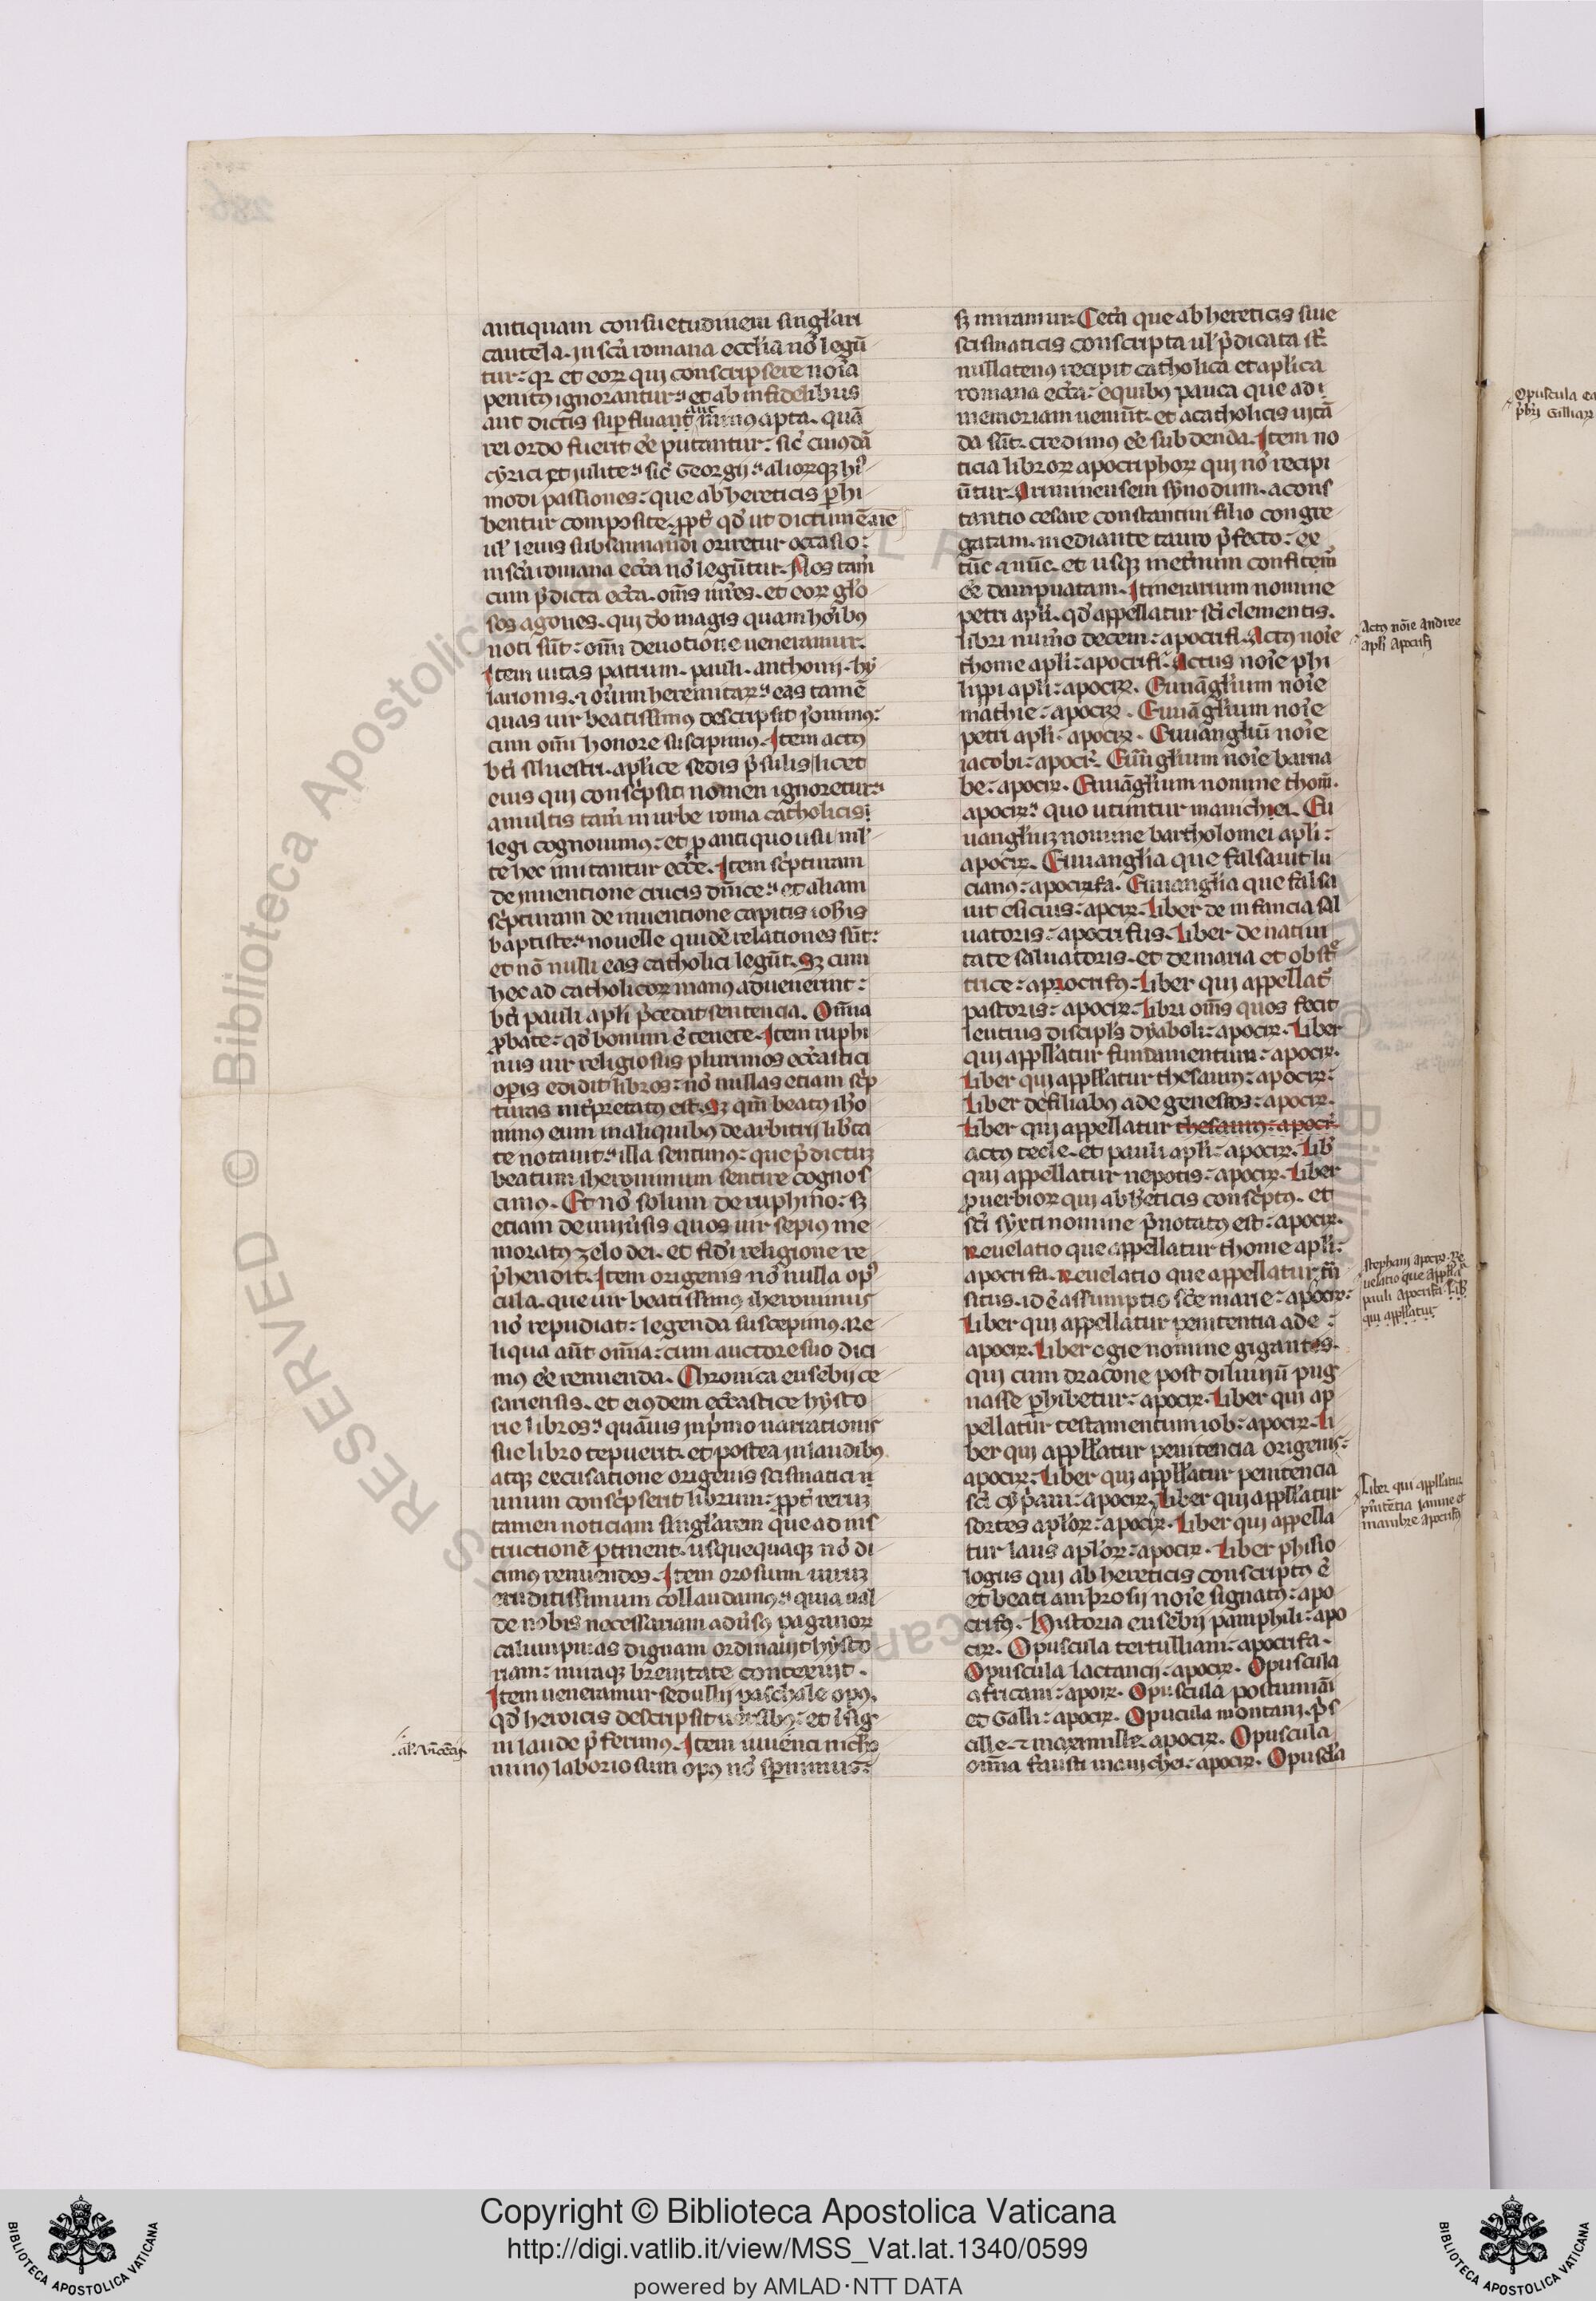 antiquam consuetudinem singl'ari
cautela. in scā romana eccl'ia nō legū
tur: qꝛ et eoꝝ qui conscripsere noīa
penitꝰ ignorantur: et ab infidelibus
aut dictis suꝑfluant aut minꝰ apta. quā
rei ordo fuerit eē putantur: sic̄ cuiꝰdā
cyrici et iulite: sic̄ Georgij: aliorqꝫ hꝰ
modi passiones: que ab hereticis ꝑhi
bentur composite. ꝓpt̄ qd̄ ut dictum ē. ne
ul' leuis subsannandi oriretur occasio:
in scā romana ecc̄a nō legūtur. Nos tam̄
cum p̄dicta ecc̄a. om̄s mr̄es. et eoꝝ gl'o
sos agones. qui do magis quam hoībꝰ
noti sūt: om̄i deuotione ueneramur.
Item uitas patrum. pauli. anthonij. hy
larionis. ⁊ oīum heremitaꝝ: eas tamē
quas uir beatissimꝰ descripsit Jonimꝰ:
cum om̄i honore suscipimꝰ. Item actꝰ
bt̄i siluestri. apl'ice sedis p̄sulis licet
eius qui consc̄psit nomen ignoretur:
a multis tam̄ in urbe roma catholicis
legi cognouimꝰ: et ꝓ antiquo usu ml'
te hec imitantur ecc̄e. Item sc̄pturam
de inuentione crucis dn̄ice: et aliam
sc̄pturam de inuentione capitis ioh̄is
baptiste: nouelle quidē relationes sūt:
et nō nulli eas catholici legūt. Sꝫ cum
hec ad catholicoꝝ manꝰ aduenerint:
bt̄i pauli apl'i p̄cedat sentencia. Om̄ia
ꝓbate: qd̄ bonum ē tenete. Item ruphi
nus uir religiosus plurimos ecc̄astici
oꝑis edidit libros: nō nullas etiam sc̄p
turas int̄pretatꝰ est. Sꝫ qm̄ beatꝰ ih̄o
nimꝰ eum in aliquibꝰ de arbitrij lib̄ta
te notauit: illa sentimꝰ: que p̄dictuꝫ
beatum iheronimum sentire cognos
cimꝰ. Et nō solum de ruphino: sꝫ
etiam de uniu̅sis quos uir sepius me
moratꝰ zelo dei. et fid'i religione re
p̄hendit. Item origenis nō nulla opꝰ
cula. que uir beatissimus iheronimus
nō repudiat: legenda suscepimus. Re
liqua aūt om̄ia: cum auctore suo dici
mꝰ eē renuenda. Chronica eusebij ce
sariensis. et eiꝰdem ecc̄astice hysto
rie libros: quāuis in p̄mo narrationis
sue libro tepuerit. et postea in laudibꝰ
atqꝫ excusatione origenis scismatici u
unum consc̄pserit librum: ꝓpt̄ reruꝫ
tamen noticiam singl'arem que ad ins
tructionē ꝑtinent. usquequaqꝫ nō di
cimꝰ renuendos. Item orosium uiruꝫ
eruditissimum collaudamꝰ: quia ual
de nobis necessariam adu̅sꝰ paganoꝝ
calumpnias dignam ordinauit hysto
riam: miraqꝫ breuitate contexuit.
Item ueneramur sedulij paschale opꝰ.
qd̄ heroicis descripsit uersibꝰ: et īsig
ni laude p̄ferimꝰ. Item iuuenci nicho
minꝰ laboriosum opꝰ nō sꝑnimus:
.al'. vincēcij.
sꝫ miramur. Cet̄a que ab hereticis siue
scismaticis conscripta ul' p̄dicata sūt
nullatenꝰ recipit catholica et apl'ica
romana ecc̄a: e quibꝰ pauca que ad
memoriam ueniūt. et a catholicis uitā
da sūt. credimꝰ eē subdenda. Item no
ticia libroꝝ apocriphoꝝ qui nō recipi
ūtur. Ariminensem synodum. a cons
tantio cesare constantini filio congre
gatam. mediante tauro p̄fecto: ex
tūc ⁊ nūc. et usqꝫ in et̄num confitem̄
eē dampnatam. Itinerarium nomine
petri apl'i. qd̄ appellatur sc̄i clementis.
libri num̄o decem: apocrifi. Actꝰ noīe
thome apl'i: apocrifi. Actus noīe phi
lippi apl'i: apocꝛ. Euuāgl'ium noīe
mathie: apocꝛ. Euuāgl'ium noīe
petri apl'i: apocꝛ. Euuangl'iū noīe
iacobi: apocꝛ. Euu̅gl'ium noīe barna
be: apocꝛ. Euuāgl'ium nomine thom̄.
apocꝛ: quo utuntur manichei. Eu
uangl'iuꝫ nomine bartholomei apl'i:
apocꝛ. Euuangl'ia que falsauit lu
cianꝰ: apocrifa. Euuangl'ia que falsa
uit esicius: apcꝛ. Liber de infancia sal
uatoris: apocrifus. Liber de natiui
tate saluatoris. et de maria et obste
trice: aprocrifꝰ. Liber qui appellat̄
pastoris: apocꝛ. Libri om̄s quos fecit
leutius discipl's dyaboli: apocꝛ. Liber
qui appll'atur fundamentum: apocꝛ.
Liber qui appll'atur thesaurꝰ: apocꝛ:
Liber de filiabꝰ ade geneseos: apocꝛ.
Liber qui appellatur thesaurꝰ: apocꝛ.
actꝰ tecle. et pauli apl'i: apocꝛ. Lib̄
qui appellatur nepotis: apocꝛ. Liber
ꝓuerbioꝝ qui ab h̄eticis consc̄ptꝰ. et
sc̄i syxti nomine p̄notatꝰ est: apocꝛ.
Reuelatio que appellatur thome apl'i:
apocrifa. Reuelatio que appellatur trā
situs. id ē assumptio sc̄e marie: apocꝛ:
Liber qui appellatur penitentia ade:
apocꝛ. Liber ogie nomine gigantes.
qui cum dracone post diluuiū pug
nasse ꝑhibetur: apocꝛ. Liber qui ap
pellatur testamentum iob: apocꝛ. Li
ber qui appll'atur penitencia origenis:
apocꝛ. Liber qui appll'atur penitencia
sc̄i cyp̄ani: apocꝛ. Liber qui appll'atur
sortes apl'oꝝ: apocꝛ. Liber qui appella
tur laus apl'oꝝ: apocꝛ. Liber phisio
logus qui ab hereticis conscriptꝰ ē
et beati ambrosij noīe signatꝰ: apo
crifꝰ. Historia eusebij pamphili: apo
cꝛ. Opuscula tertulliani: apocrifa.
Opuscula lactancij: apocꝛ. Opuscula
africani: apocꝛ. Opuscula postumiāi
et Galli: apocꝛ. Opucula montani. p̄s
cille. ⁊ maximille. apocꝛ. Opuscula
om̄ia fausti manichei: apocꝛ. Opuscl'a
Actꝰ nōie Andree
apl'i Apocrifi
stephani apocꝛ. Re
uelatio que appll'a
pauli Apocrifa. Lib̄
qui appll'atur
Liber qui appll'atur
pn̄itētia Jamne et
mambre apocrifꝰ
Opuscula
p̄bri Galliaꝝ
© Biblioteca Apostolica Vaticana
ALL RIGHTS RESERVED
Copyright © Biblioteca Apostolica Vaticana
http://digi.vatlib.it/view/MSS_Vat.lat.1340/0599
powered by AMLAD·NTT DATA
BIBLIOTECA APOSTOLICA VATICANA
BIBLIOTECA APOSTOLICA VATICANA